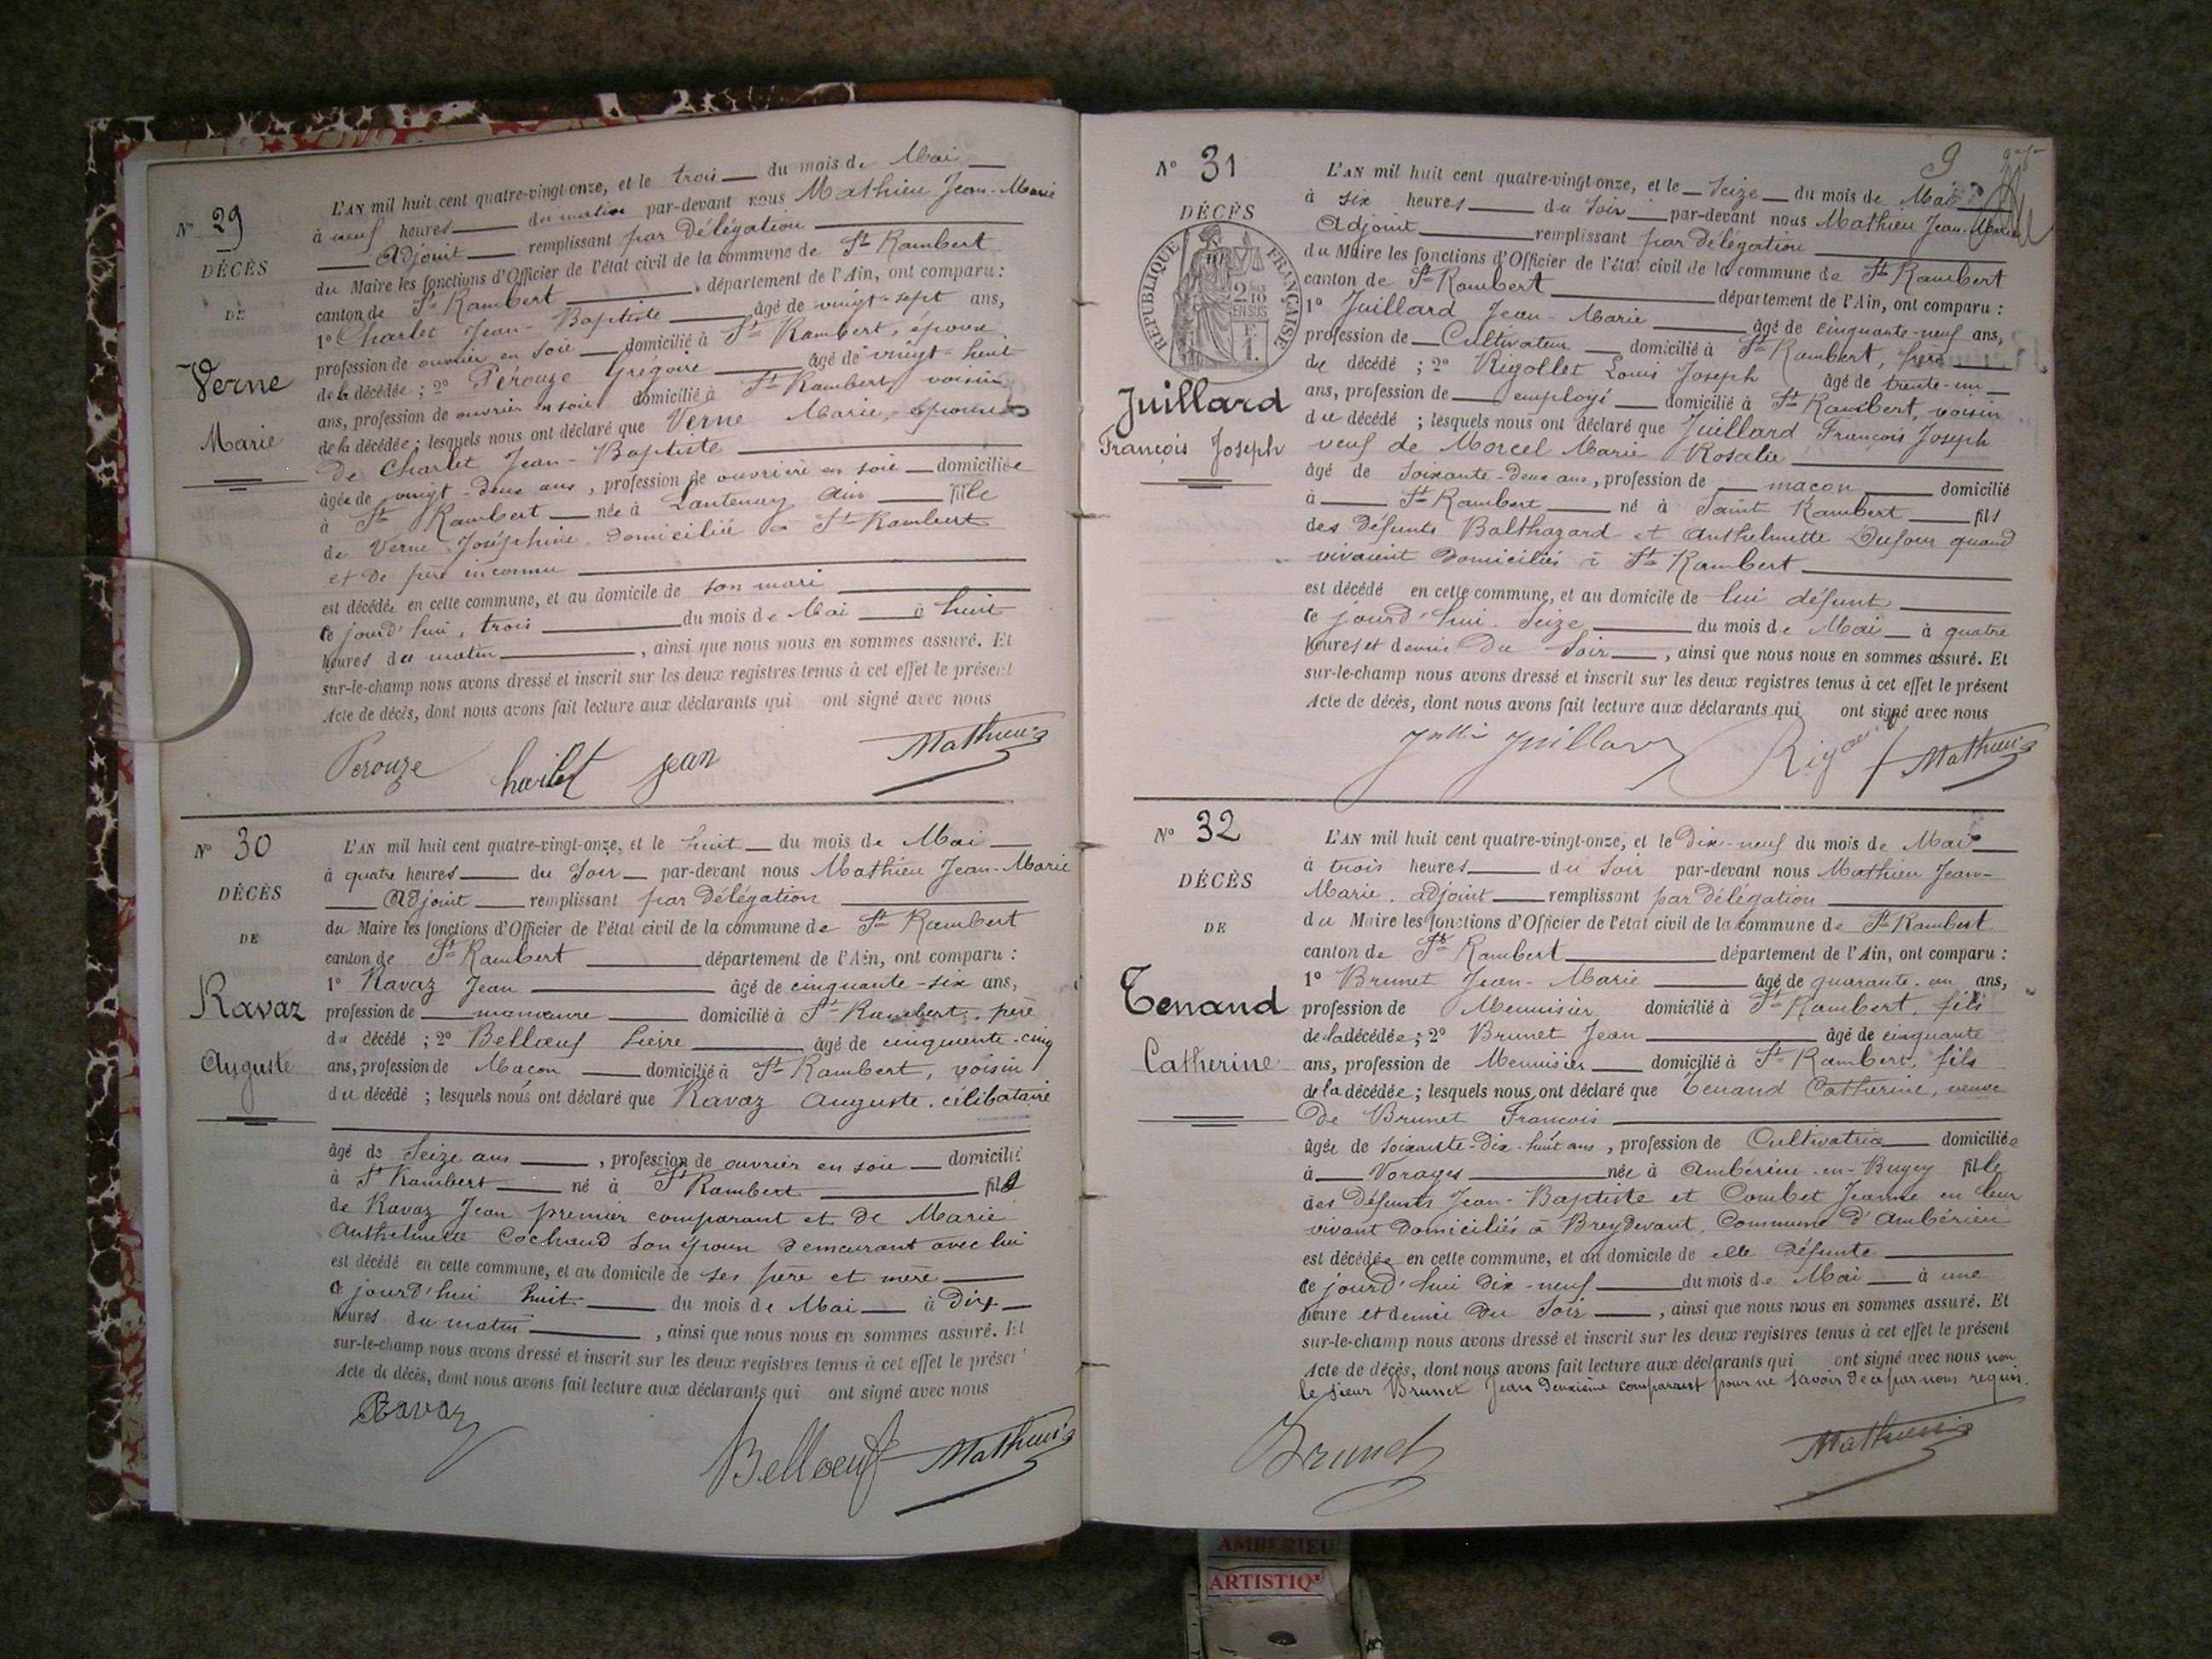 N° 29
DÉCÈS
DE
Verne
Marie
L'AN mil huit cent quatre-vingt-onze, et le trois du mois de Mai
à neuf heures du matin par-devant nous Mathieu Jean-Marie
Adjoint remplissant par Délégation
du Maire les fonctions d'Officier de l'état civil de la commune de St Rambert
canton de St Rambert, département de l'Ain, ont comparu :
1° Charlet Jean-Baptiste âgé de vingt-sept ans,
profession de ouvrier en soie domicilié à St Rambert, époux
de la décédée ; 2° Pérouze Grégoire âgé de vingt-huit
ans, profession de ouvrier en soie domicilié à St Rambert, voisin
de la décédée ; lesquels nous ont déclaré que Verne Marie, épouse
de Charlet Jean-Baptiste
âgée de vingt-deux ans, profession de ouvrière en soie domiciliée
à St Rambert née à Lantenay Ain fille
de Verne Joséphine, domiciliée à St Rambert
et de père inconnu
est décédée en cette commune, et au domicile de son mari
ce jourd'hui, trois du mois de Mai à huit
heures du matin, ainsi que nous nous en sommes assuré. Et
sur-le-champ nous avons dressé et inscrit sur les deux registres tenus à cet effet le présent
Acte de décès, dont nous avons fait lecture aux déclarants qui ont signé avec nous
Perouze Charlet jean Mathieu
N° 30
DÉCÈS
DE
Ravaz
Auguste
L'AN mil huit cent quatre-vingt-onze, et le huit du mois de Mai
à quatre heures du Soir par-devant nous Mathieu Jean-Marie
Adjoint remplissant par Délégation
du Maire les fonctions d'Officier de l'état civil de la commune de St Rambert
canton de St Rambert département de l'Ain, ont comparu :
1° Ravaz Jean âgé de cinquante-six ans,
profession de manœuvre domicilié à St Rambert, père
du décédé ; 2° Bellœuf Pierre âgé de cinquante-cinq
ans, profession de Maçon domicilié à St Rambert, voisin
du décédé ; lesquels nous ont déclaré que Ravaz Auguste, célibataire
âgé de Seize ans, profession de ouvrier en soie domicilié
à St Rambert né à St Rambert fils
de Ravaz Jean premier comparant et de Marie
Anthelmette Cochaud son épouse demeurant avec lui
est décédé en cette commune, et au domicile de ses père et mère
ce jourd'hui huit du mois de Mai à Dix
heures du matin, ainsi que nous nous en sommes assuré. Et
sur-le-champ nous avons dressé et inscrit sur les deux registres tenus à cet effet le présent
Acte de décès, dont nous avons fait lecture aux déclarants qui ont signé avec nous
Ravaz Bellœuf Mathieu
9
N° 31
DÉCÈS
RÉPUBLIQUE FRANÇAISE
2/10
EN SUS
Juillard
François Joseph
L'AN mil huit cent quatre-vingt-onze, et le Seize du mois de Mai
à six heures du Soir par-devant nous Mathieu Jean-Marie
Adjoint remplissant par délégation
du Maire les fonctions d'Officier de l'état civil de la commune de St Rambert
canton de St Rambert département de l'Ain, ont comparu :
1° Juillard Jean-Marie âgé de cinquante-neuf ans,
profession de Cultivateur domicilié à St Rambert, frère
du décédé ; 2° Rigollet Louis Joseph âgé de trente-un
ans, profession de employé domicilié à St Rambert, voisin
du décédé ; lesquels nous ont déclaré que Juillard François Joseph
veuf de Morcel Marie Rosalie
âgé de soixante-deux ans, profession de maçon domicilié
à St Rambert né à Saint Rambert fils
des défunts Balthazard et Anthelmette Dufour quand
vivaient domiciliés à St Rambert
est décédé en cette commune, et au domicile de lui défunt
ce jourd'hui Seize du mois de Mai à quatre
heures et demie du Soir, ainsi que nous nous en sommes assuré. Et
sur-le-champ nous avons dressé et inscrit sur les deux registres tenus à cet effet le présent
Acte de décès, dont nous avons fait lecture aux déclarants qui ont signé avec nous
Juillard Mathieu
N° 32
DÉCÈS
DE
Tenand
Catherine
L'AN mil huit cent quatre-vingt-onze, et le Dix-neuf du mois de Mai
à trois heures du Soir par-devant nous Mathieu Jean-
Marie, adjoint remplissant par délégation
du Maire les fonctions d'Officier de l'état civil de la commune de St Rambert
canton de St Rambert département de l'Ain, ont comparu :
1° Brunet Jean-Marie âgé de quarante-un ans,
profession de Menuisier domicilié à St Rambert, fils
de la décédée ; 2° Brunet Jean âgé de cinquante
ans, profession de Menuisier domicilié à St Rambert, fils
de la décédée ; lesquels nous ont déclaré que Tenand Catherine, veuve
de Brunet François
âgée de soixante-Dix-huit ans, profession de Cultivatrice domiciliée
à Vorages née à Ambérieu-en-Bugey fille
des défunts Jean-Baptiste et Combet Jeanne en leur
vivant domiciliés à Breydevant, Commune d'Ambérieu
est décédée en cette commune, et au domicile de elle défunte
ce jourd'hui dix-neuf du mois de Mai à une
heure et demie du Soir, ainsi que nous nous en sommes assuré. Et
sur-le-champ nous avons dressé et inscrit sur les deux registres tenus à cet effet le présent
Acte de décès, dont nous avons fait lecture aux déclarants qui ont signé avec nous non
le sieur Brunet Jean deuxième comparant pour ne savoir de ce par nous requis.
Brunet Mathieu
AMBERIEU
ARTISTIQ